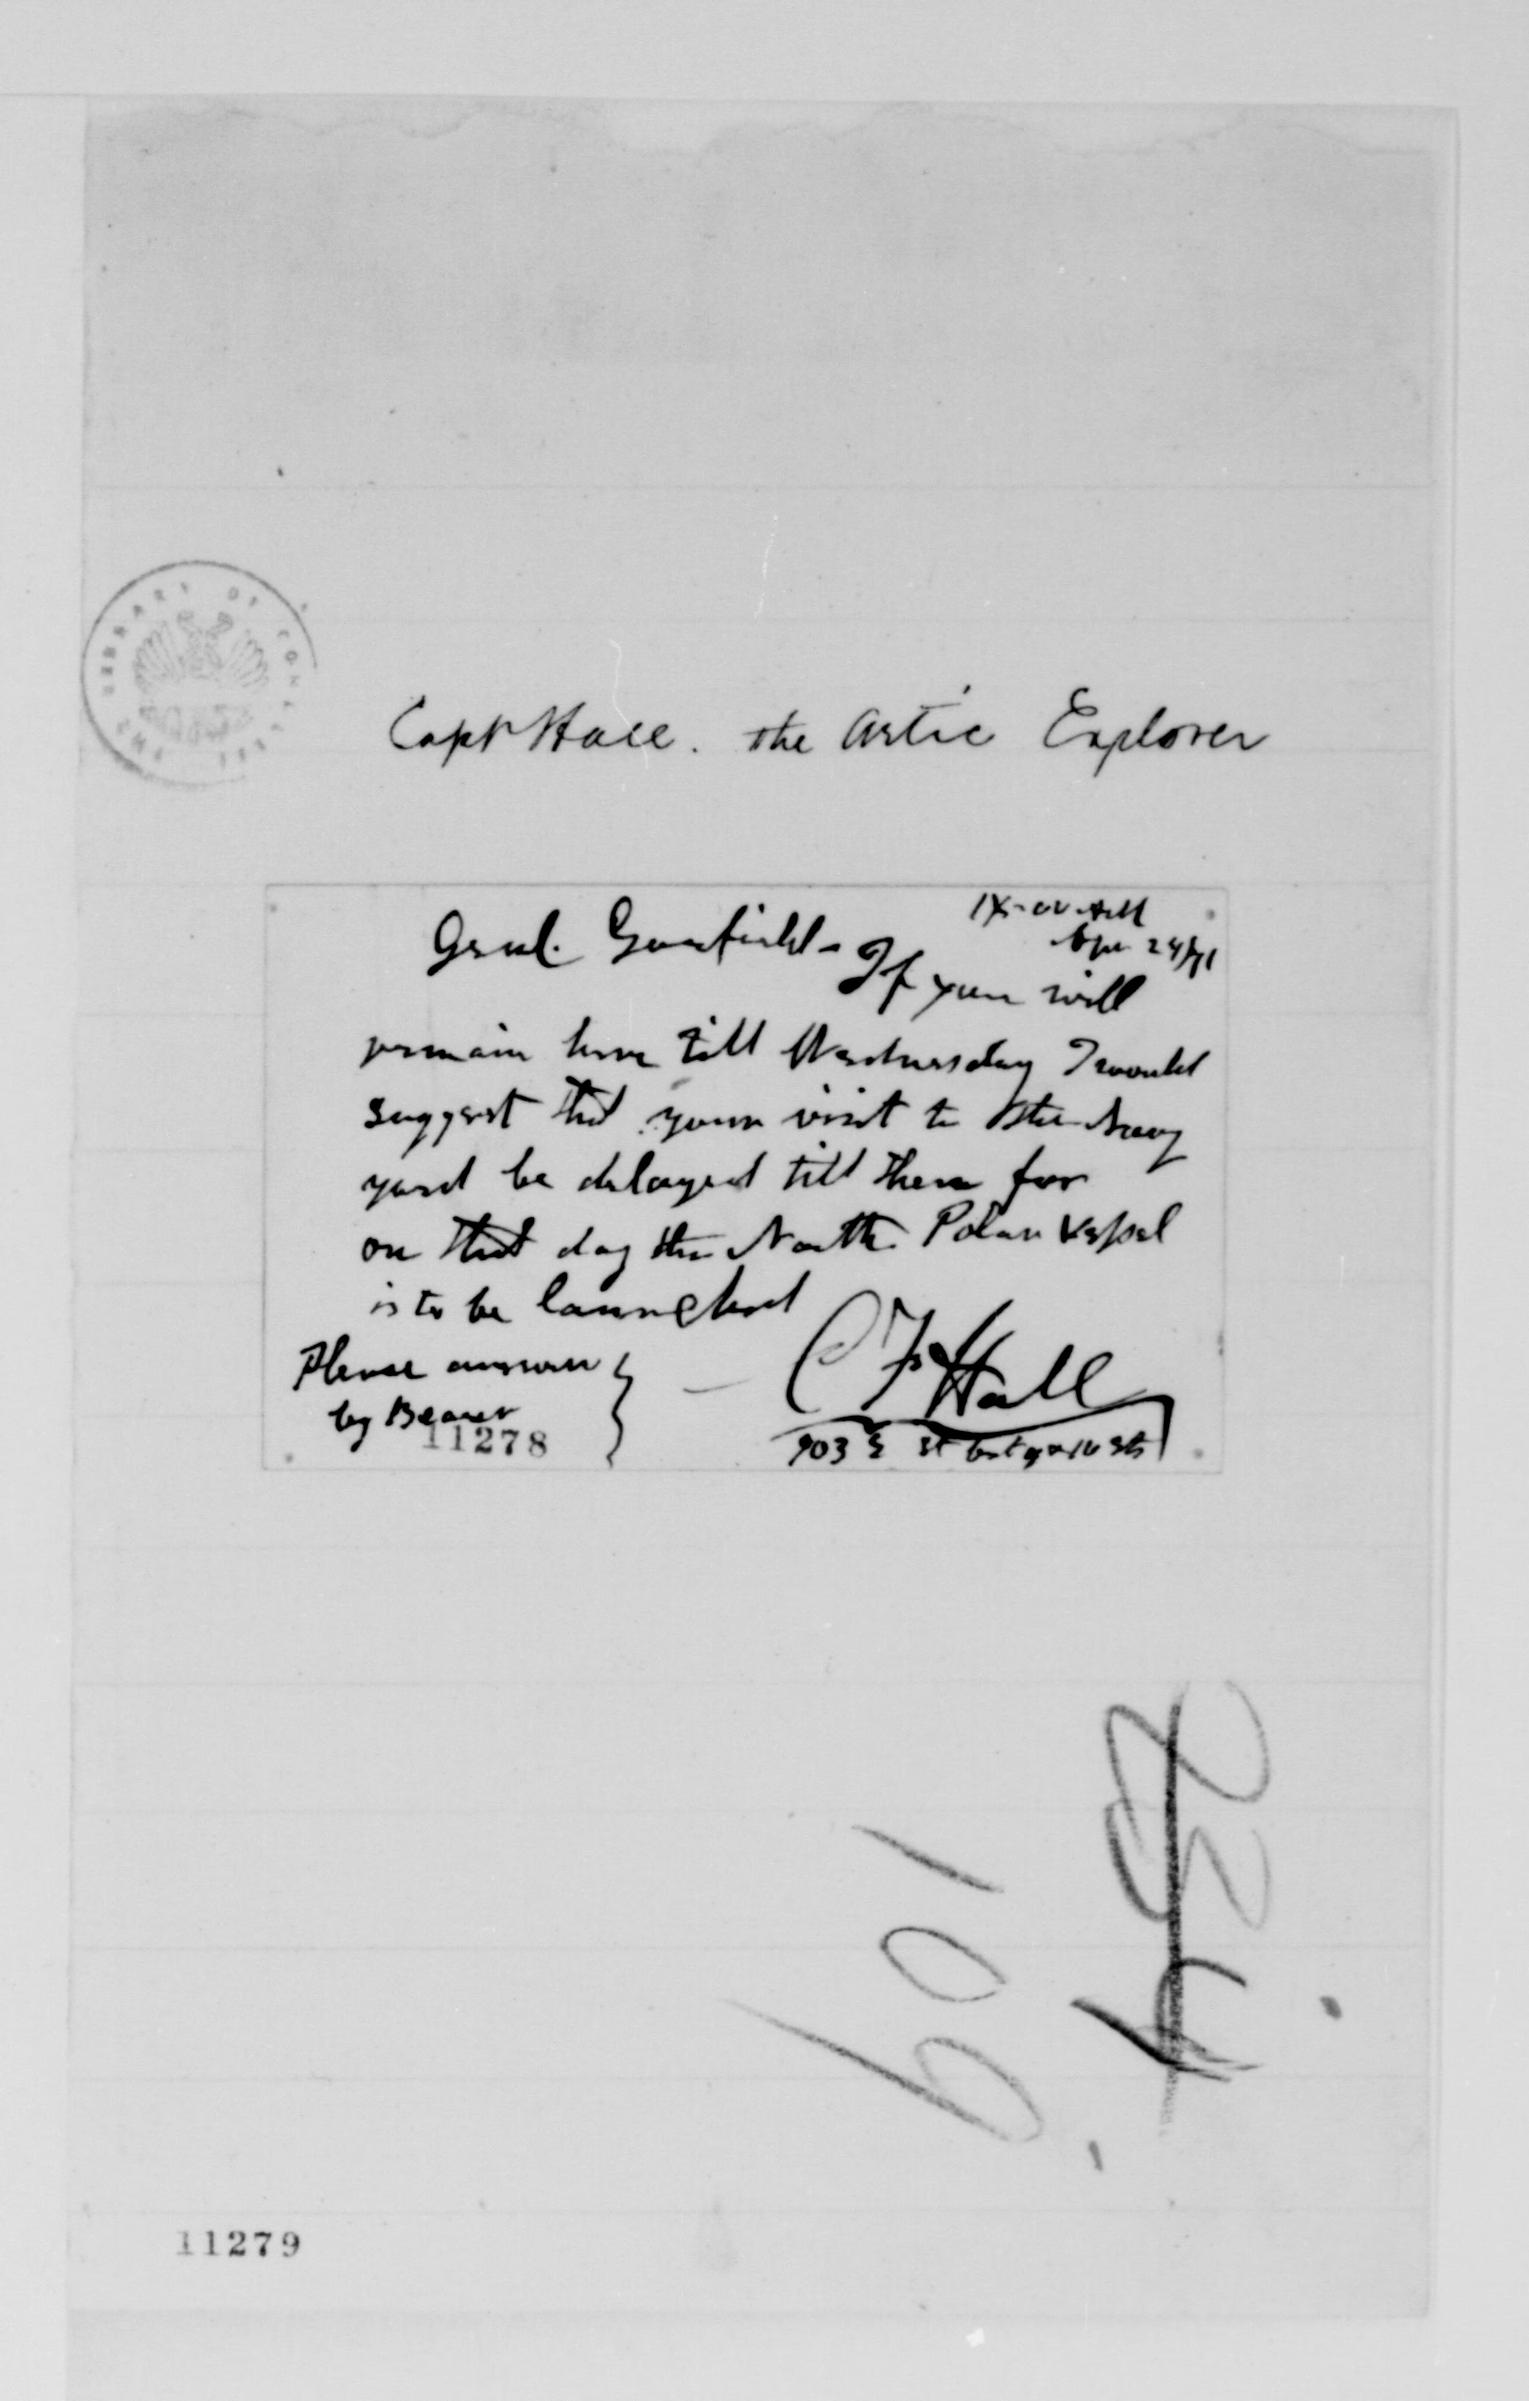 THE LIBRARY OF CONGRESS
Capt Hall. the Artic Explorer
Apr 24/71
Genl. Garfield - If you will
remain here till Wednesday I would
suggest that your visit to the Navy
yard be delayed till then for
on that day the North Polar Vessel
is to be launched
Please answer
by Bearer
C F Hall
903 E St bet 9 & 10 Sts
11278
109
234
11279